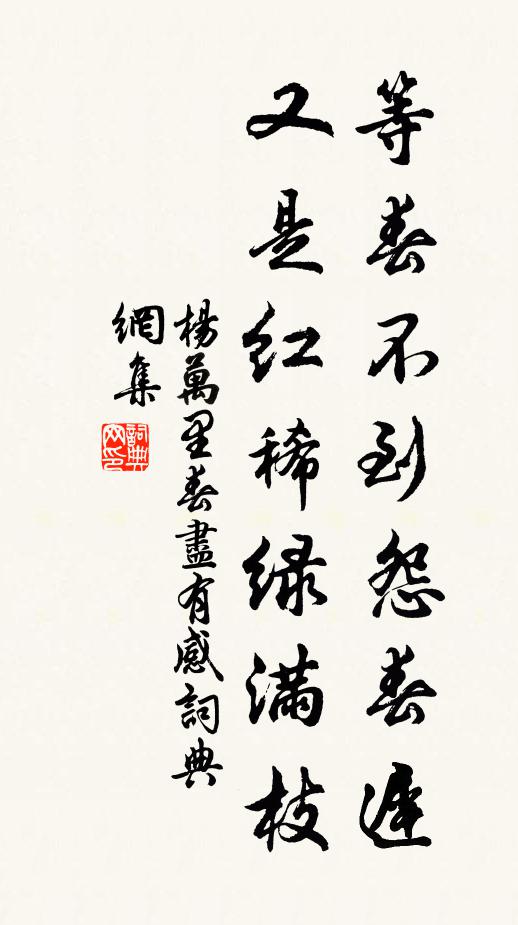 等春不到怨春遲
又是紅稀緑滿枝
楊萬里春盡有感詞典
網集
詞典
网印